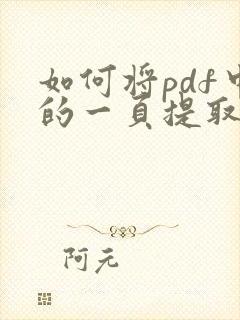 如何将pdf中
的一頁提取
阿元